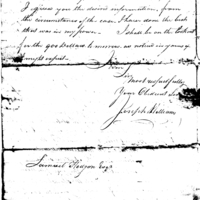 I given you the desired information, from
the circumstances of the case, I have done the best
that was in my power. I shall be on the look out
for the
might expect.
I am
Sir
most respectfully
Your Obedient Ser
Joseph Williams
Samuel Hodgson Esqr